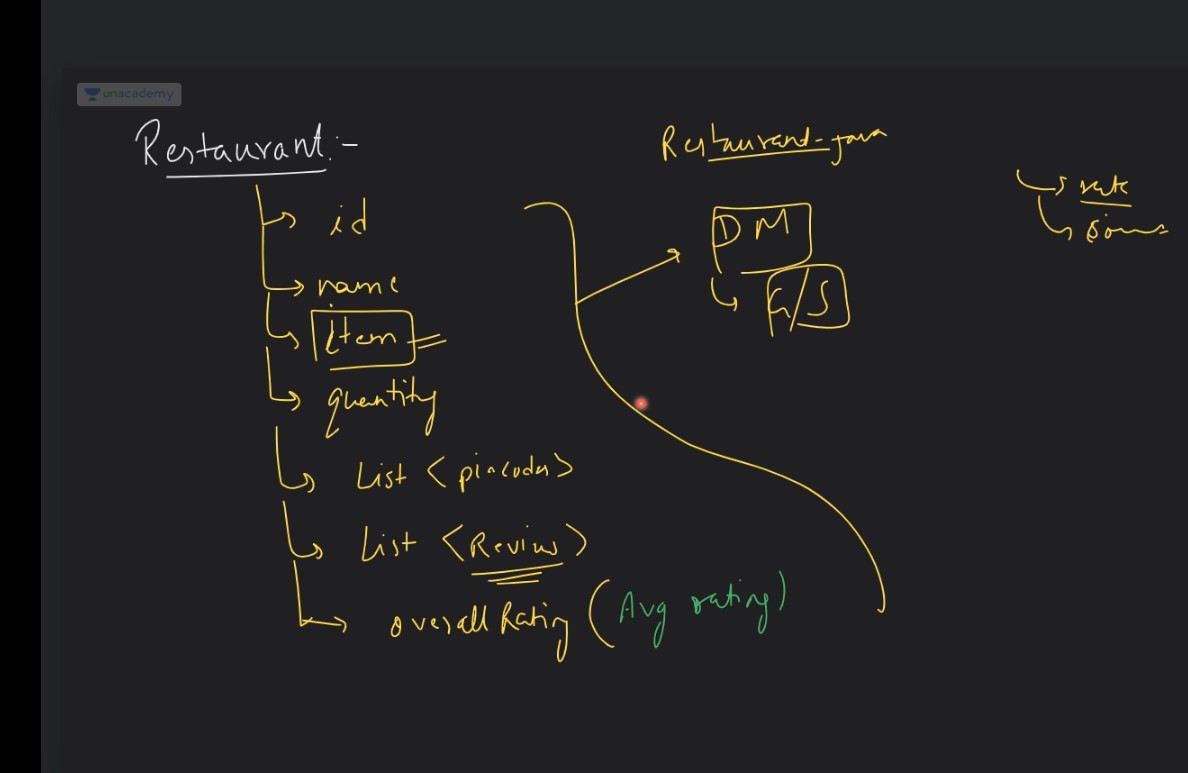 unacademy
Restaurant:-
id
name
item
quantity
List <pincodes>
List <Reviews>
overall Rating (Avg rating)
Restaurant.java
DM
G/S
rate